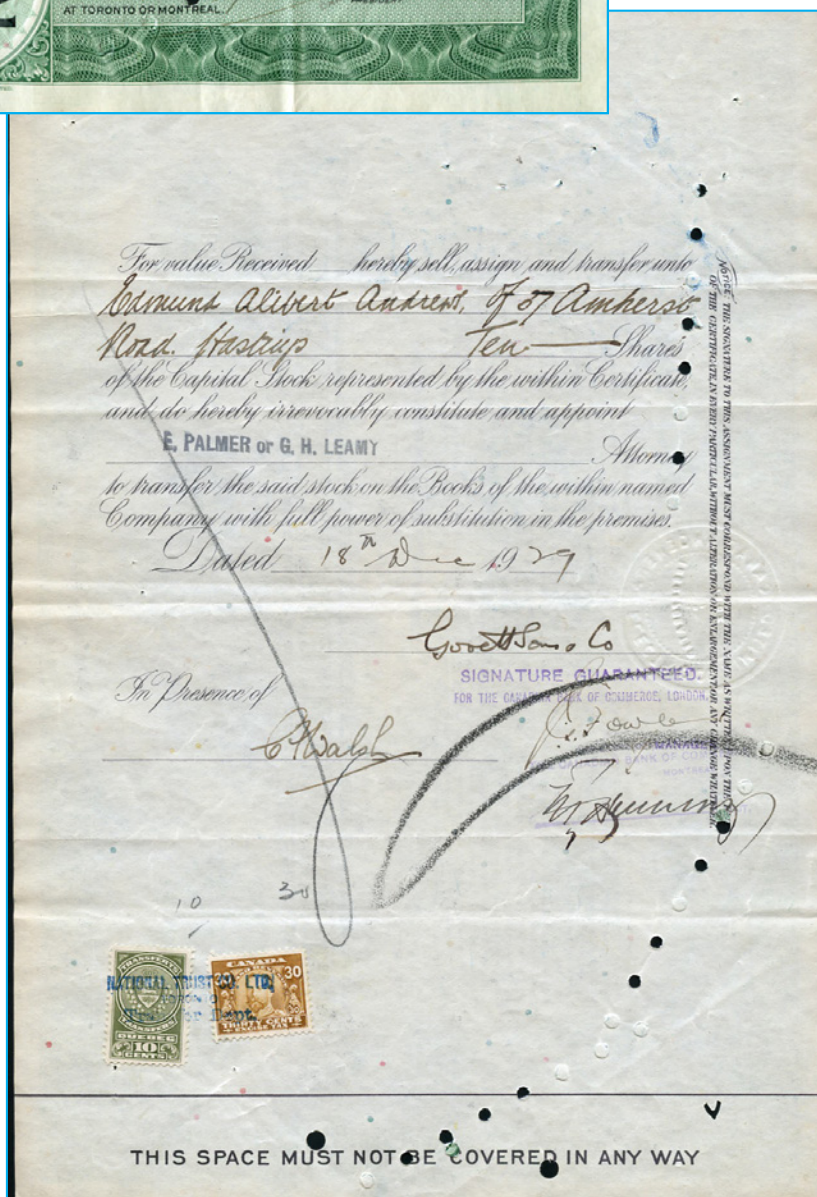 AT TORONTO OR MONTREAL.
For value Received hereby sell, assign and transfer unto
Edmund Alibert Andrews, of 37 Amherst
Road. Hastings Ten Shares
of the Capital Stock represented by the within Certificate,
and do hereby irrevocably constitute and appoint
E. PALMER or G. H. LEAMY
Attorney
to transfer the said stock on the Books of the within named
Company with full power of substitution in the premises.
Dated 18th Dec 1929
Govett Sons & Co
SIGNATURE GUARANTEED.
FOR THE CANADIAN BANK OF COMMERCE, LONDON.
In Presence of
C Walsh
MANAGER
BANK OF
MONTREAL
NOTICE, THE SIGNATURE TO THIS ASSIGNMENT MUST CORRESPOND WITH THE NAME AS WRITTEN UPON THE FACE
OF THE CERTIFICATE IN EVERY PARTICULAR, WITHOUT ALTERATION OR ENLARGEMENT OR ANY CHANGE WHATEVER.
10 30
NATIONAL TRUST CO. LTD.
TRANSFERTS
TRANSFERS
QUEBEC
10
CENTS
CANADA
30
THIRTY CENTS
EXCISE TAX
THIS SPACE MUST NOT BE COVERED IN ANY WAY